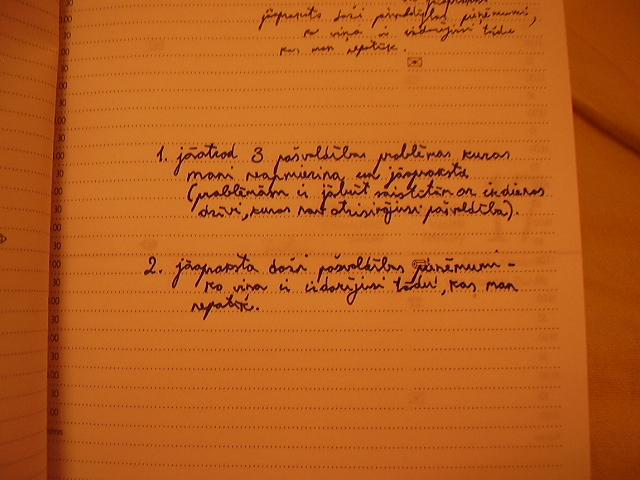 jāapraksta daži pašvaldības pieņēmumi,
ko viņa ir izdarījusi tādu
kas man nepatīk.
1. jāatrod 3 pašvaldības problēmas kuras
mani neapmierina un jāapraksta
(problēmām ir jābūt saistītām ar ikdienas
dzīvi, kuras nav atrisinājusi pašvaldība).
2. jāapraksta daži pašvaldības pieņēmumi -
ko viņa ir izdarījusi tādu, kas man
nepatīk.